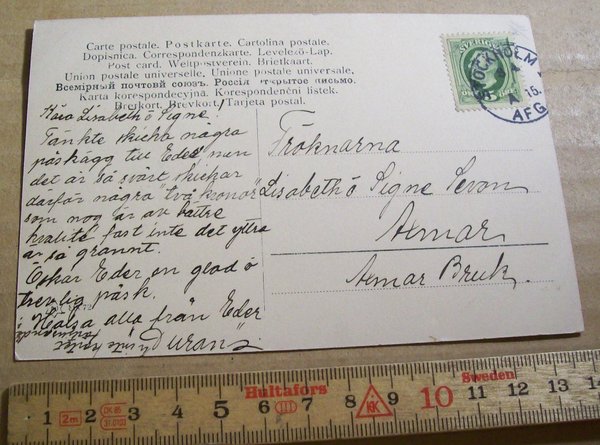 Carte postale. Postkarte. Cartolina postale.
Dopisnica. Correspondenzkarte. Levelező-Lap.
Post card. Weltpostverein. Briefkaart.
Union postale universelle. Unione postale universale.
Всемірный почтовй союзъ. Россія открытое письмо.
Karta korespondecyjna. Korespondenční listek.
Brefkort. Brevkort. Tarjeta postal.
SVERIGE
5
STOCKHOLM
A 15.
AFG
Kära Lisabeth ö Signe!
Tänkte skicka några
påskägg till Eder men
det är så svårt skickar
därför några "två kronor"
som nog är av bättre
kvalité fast inte det yttra
är så grannt.
Önskar Eder en glad ö
trevlig påsk.
Hälsa alla från Eder
Duran
Fröknarna
Lisabeth ö Signe Sevon
Aemar
Aemar Bruk.
Hultafors
Sweden
1 2m 2 3 4 5 6 7 8 9 10 11 12 13 14